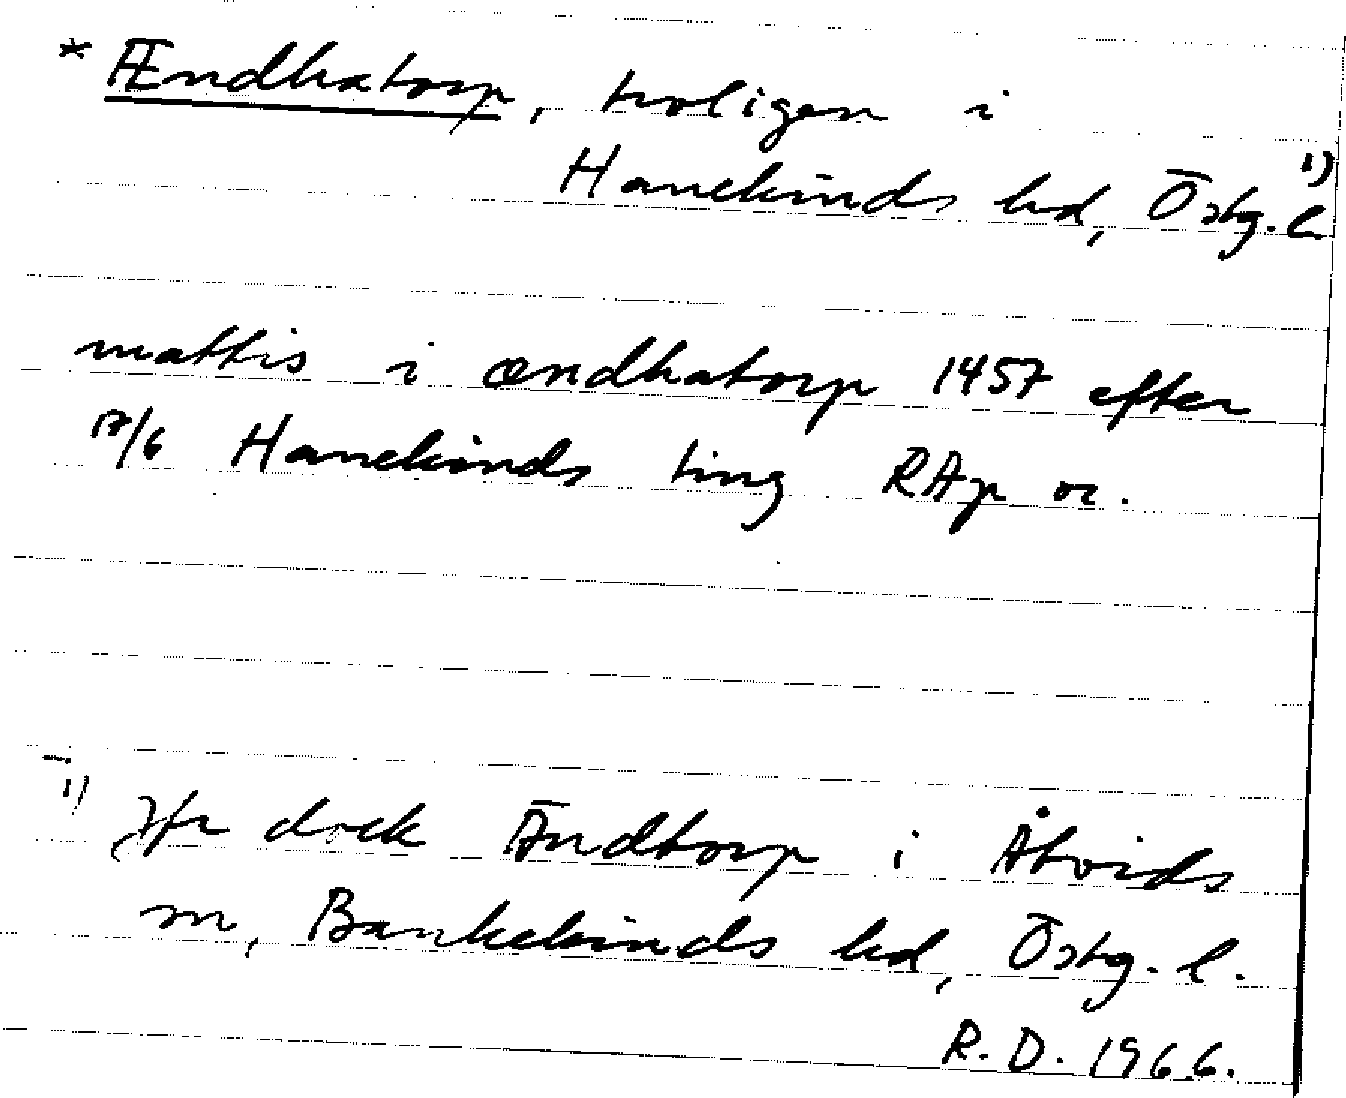 * Ændhatorp, troligen i
Hanekinds hd, Östg. l. 1)
mattis i ændhatorp 1457 efter
17/6 Hanekinds ting RAp or.
1) Jfr dock Ändtorp i Åtvids
sn, Bankekinds hd, Östg. l.
R. D. 1966.